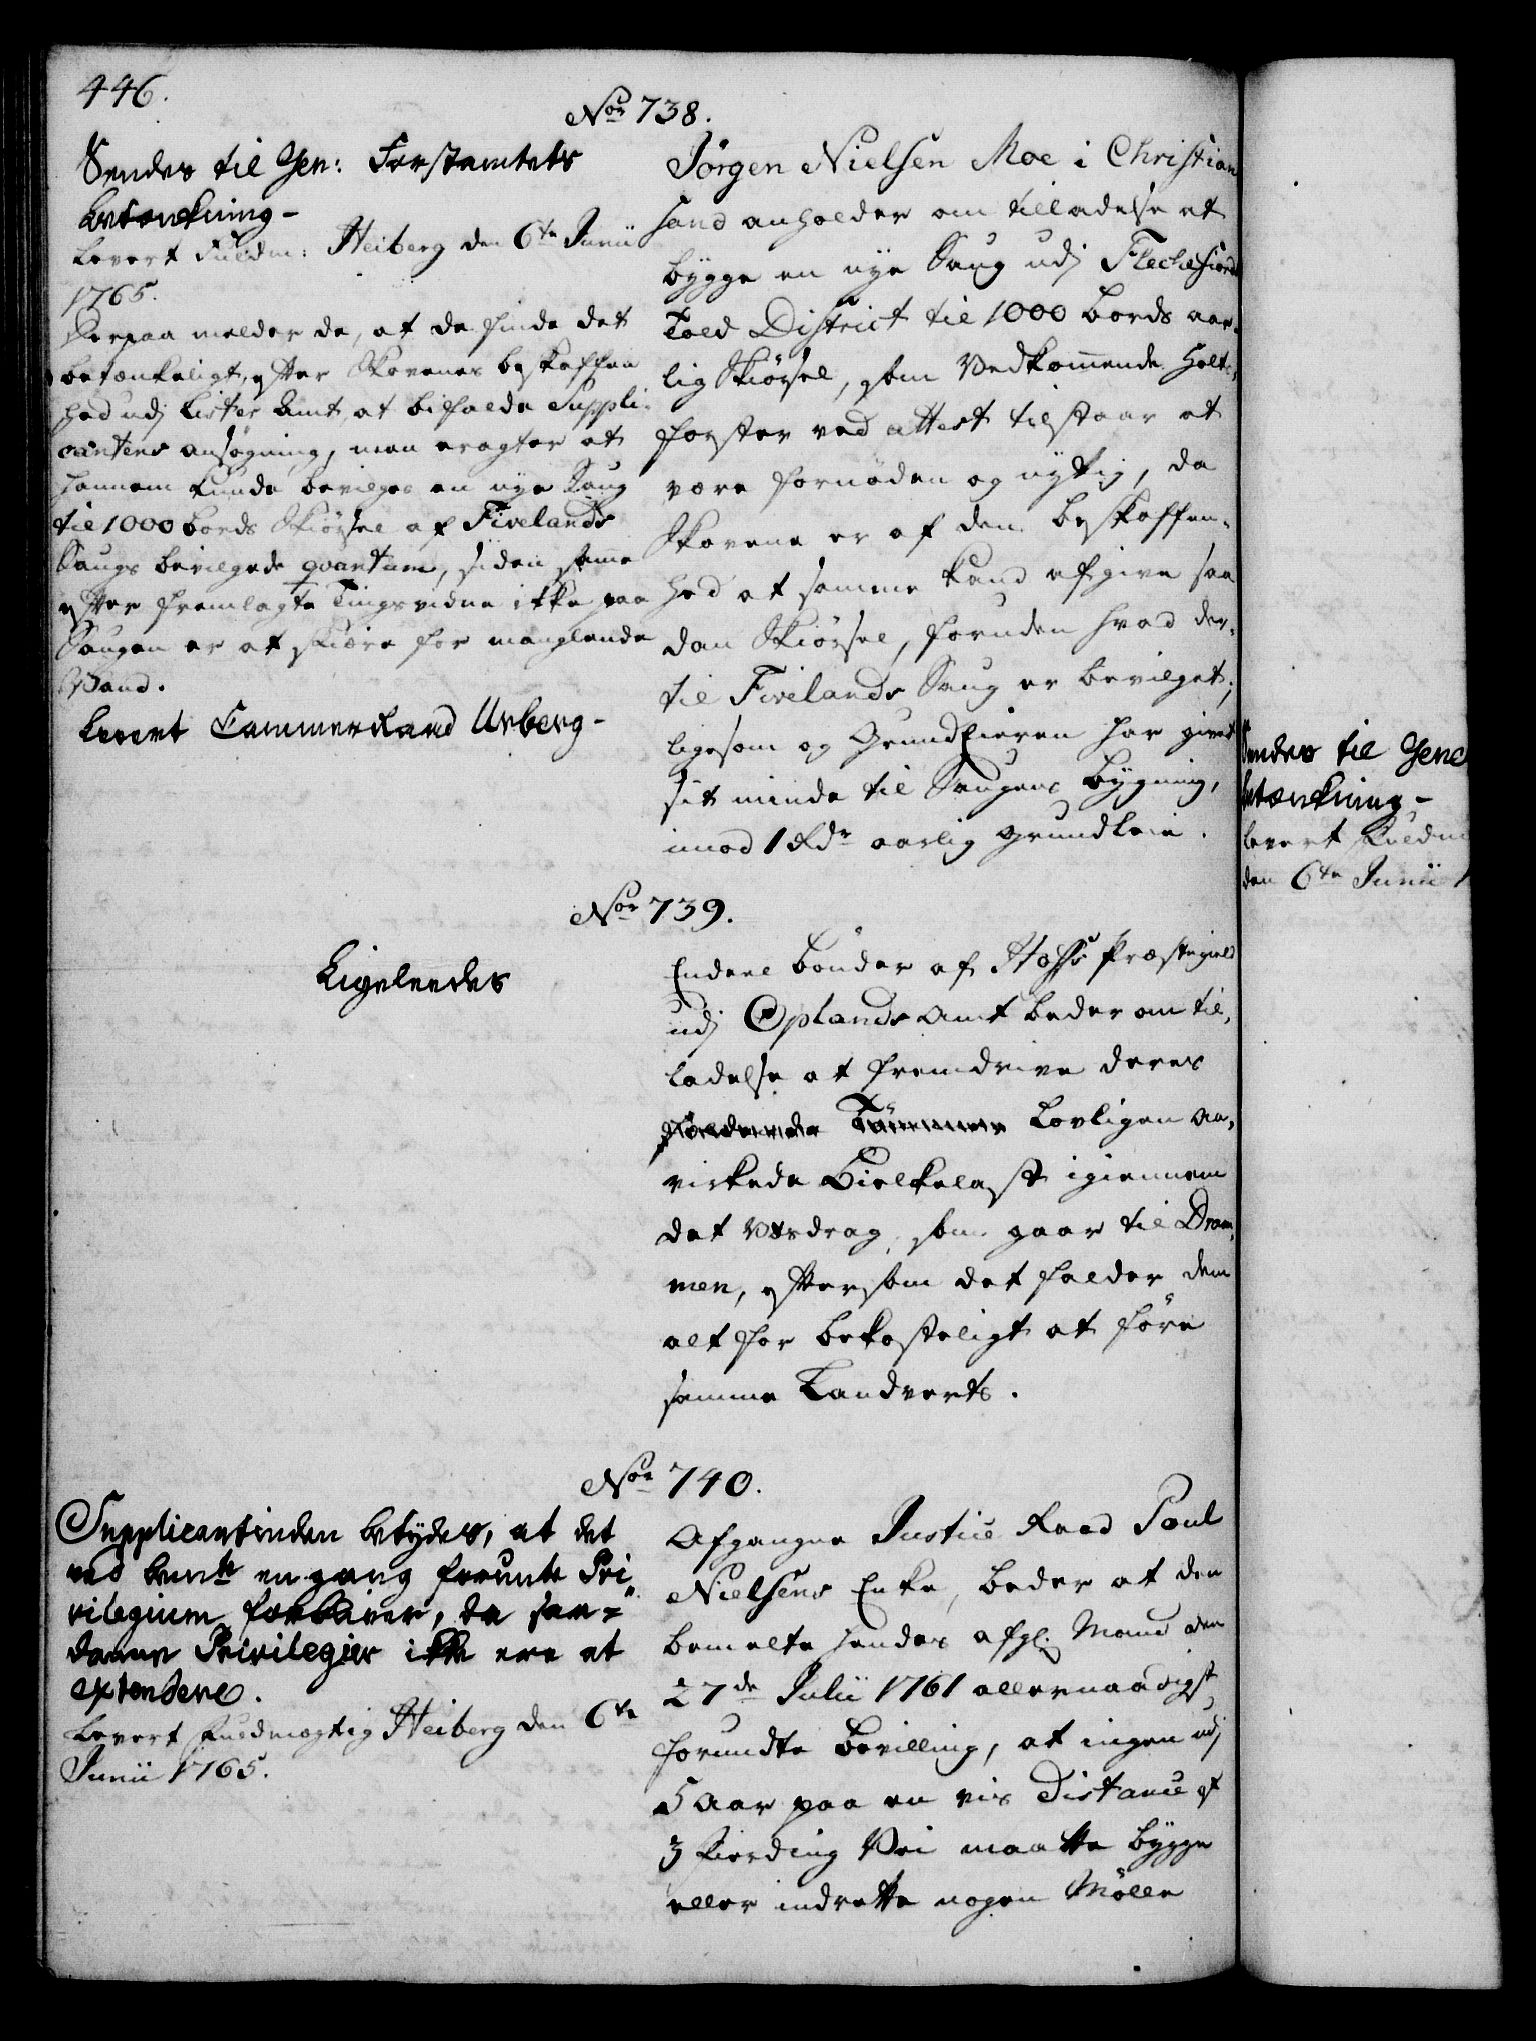 446.
Nor 738.
Sendes til Gen: Forstamtets
Betænkning-
Levert Fuldm: Heiberg den 6te Junii
1765.
Herpaa melder de, at de finde det
betænkeligt, efter Skovenes beskaffen
hed udj Lister Amt, at bifalde Suppli-
cantens ansøgning, men eragter at
hannem kunde bevilges en nye Saug
til 1000 bords Skiørsel af Fivelands
Saugs bevilgede qvantum, siden samme
efter fremlagte Tingsvidne ikke paa
Saugen er at skiære for manglende
Vand.
Levert Cammerraad Urberg-
Jörgen Nielsen Moe i Christian
sand anholder om tilladelse at
bygge en nye Saug udj Flechefiords
Told District til 1000 bords aar-
lig Skiørsel, som Vedkommende Holtz-
forster ved attest tilstaar at
være fornøden og nyttig, da
Skovene er af den beskaffen-
hed at samme kand afgive saa
dan Skiørsel, foruden hvad der-
til Fivelands Saug er bevilget;
ligesom og Grund Eieren har givet
sit minde til Saugens bygning,
imod 1 Rdr aarlig grundleie.
Nor 739.
Ligeleedes
Endeel bönder af Næss Præstegield
udj Oplands Amt beder om til-
ladelse at fremdrive deres
Tömmer Lovligen aa-
virkede Bielkelast igiennem
det Vasdrag, som gaar til Dram-
men, eftersom det falder dem
alt for bekosteligt at före
samme Landverts.
Nor 740.
Supplicantinden betydes, at det
ved hendes en gang forundte Pri
vilegium forbliver, da saa-
danne Privilegier ikke ere at
extendere.
Levert Fuldmægtig Heiberg den 6te
Junii 1765.
Afgangne Justice Raad Poul
Nielsens Enke, beder at den
bemelte hendes afgl. Mand den
27de Julii 1761 allernaadigst
forundte bevilling, at ingen udj
5 Aar paa en vis Distance af
3 Fierding Vei maatte bygge
eller indrette nogen Mölle
Sendes til Gene
betænkning-
Levert Fuldm
den 6te Junii 1